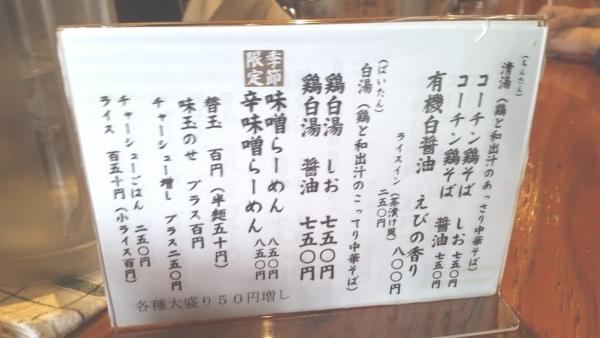 (ちんたん)
清湯(鶏と和出汁のあっさり中華そば)
コーチン鶏そば しお 七五〇円
コーチン鶏そば 醤油 七五〇円
有機白醤油 えびの香り 八〇〇円
ライスイン(茶漬け風) 二五〇円
(ぱいたん)
白湯(鶏と和出汁のこってり中華そば)
鶏白湯 しお 七五〇円
鶏白湯 醤油 七五〇円
季節限定
味噌らーめん 八五〇円
辛味噌らーめん 八五〇円
替玉 百円(半麺五十円)
味玉のせ プラス百円
チャーシュー増し プラス二五〇円
チャーシューごはん 二五〇円
ライス 百五十円(小ライス百円)
各種大盛り50円増し